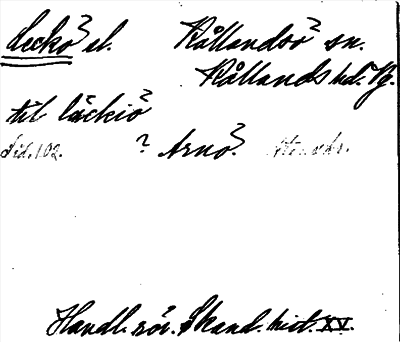 Leckö sl. Kållandsö sn.
Kållands hd. Vg.
til läckiö
Sid. 102. ? Arnö.
Handl. rör. Skand. hist. XV.